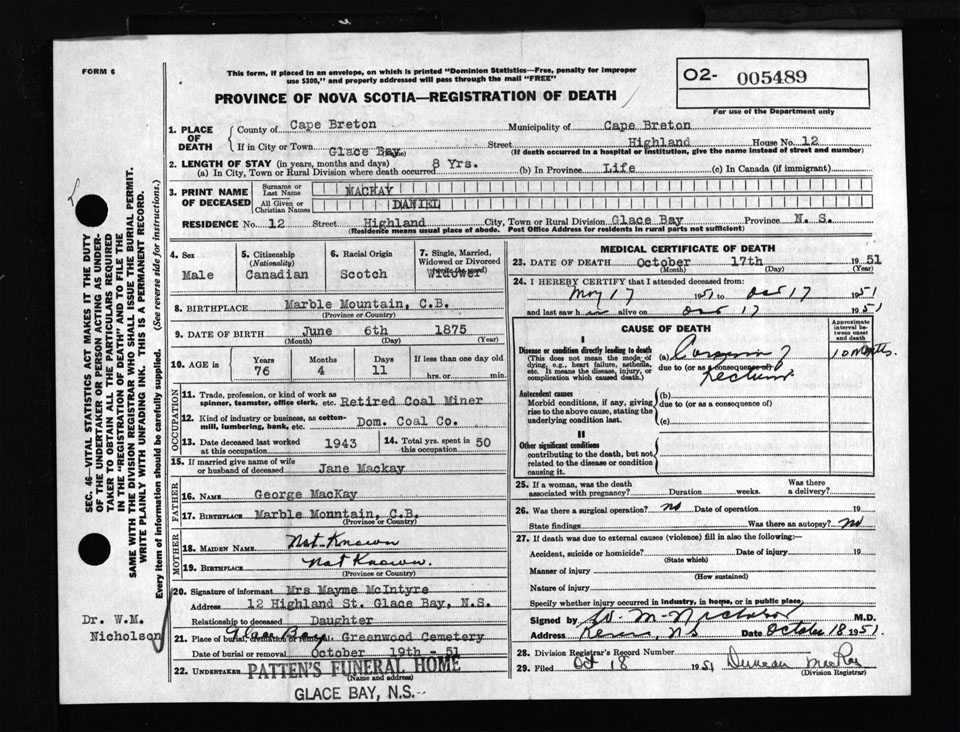 FORM 6
This form, if placed in an envelope, on which is printed "Dominion Statistics—Free, penalty for improper
use $300," and properly addressed will pass through the mail "FREE"
O2- 005489
For use of the Department only
PROVINCE OF NOVA SCOTIA—REGISTRATION OF DEATH
1. PLACE OF DEATH
County of Cape Breton Municipality of Cape Breton
If in City or Town Glace Bay Street Highland House No. 12
(If death occurred in a hospital or institution, give the name instead of street and number)
2. LENGTH OF STAY (in years, months and days)
(a) In City, Town or Rural Division where death occurred 8 Yrs. (b) In Province Life (c) In Canada (if immigrant)
3. PRINT NAME OF DECEASED
Surname or Last Name MACKAY
All Given or Christian Names DANIEL
RESIDENCE No. 12 Street Highland City, Town or Rural Division Glace Bay Province N. S.
(Residence means usual place of abode. Post Office Address for residents in rural parts not sufficient)
4. Sex Male
5. Citizenship (Nationality) Canadian
6. Racial Origin Scotch
7. Single, Married, Widowed or Divorced Widower
8. BIRTHPLACE Marble Mountain, C.B.
(Province or Country)
9. DATE OF BIRTH June 6th 1875
(Month) (Day) (Year)
10. AGE in Years Months Days If less than one day old
76 4 11 hrs. or min.
OCCUPATION
11. Trade, profession, or kind of work as
spinner, teamster, office clerk, etc. Retired Coal Miner
12. Kind of industry or business, as cotton-
mill, lumbering, bank, etc. Dom. Coal Co.
13. Date deceased last worked at this occupation 1943
14. Total yrs. spent in this occupation 50
15. If married give name of wife
or husband of deceased Jane Mackay
FATHER
16. NAME George MacKay
17. BIRTHPLACE Marble Monntain, C.B.
(Province or Country)
MOTHER
18. MAIDEN NAME Not Known
19. BIRTHPLACE Not Known.
(Province or Country)
20. Signature of informant Mrs Mayme McIntyre
Address 12 Highland St. Glace Bay, N.S.
Relationship to deceased Daughter
21. Place of burial, cremation or removal Glace Bay Greenwood Cemetery
Date of burial or removal October 19th - 51
22. UNDERTAKER PATTEN'S FUNERAL HOME
(Name and address)
GLACE BAY, N.S.
MEDICAL CERTIFICATE OF DEATH
23. DATE OF DEATH October 17th 1951
(Month) (Day) (Year)
24. I HEREBY CERTIFY that I attended deceased from:
May 17 1951 to Oct 17 1951
and last saw him alive on Oct 17 1951
CAUSE OF DEATH
Approximate interval between onset and death
I
Disease or condition directly leading to death
(This does not mean the mode of
dying, e.g., heart failure, asthenia,
etc. It means the disease, injury, or
complication which caused death.)
(a) of
due to (or as a consequence of)
Rectum
10 months.
Antecedent causes
Morbid conditions, if any, giving
rise to the above cause, stating the
underlying condition last.
(b)
due to (or as a consequence of)
(c)
II
Other significant conditions
contributing to the death, but not
related to the disease or condition
causing it.
25. If a woman, was the death
associated with pregnancy? Duration weeks. Was there a delivery?
26. Was there a surgical operation? no Date of operation 19
State findings Was there an autopsy? no
27. If death was due to external causes (violence) fill in also the following:—
Accident, suicide or homicide? Date of injury 19
(State which)
Manner of injury
(How sustained)
Nature of injury
Specify whether injury occurred in industry, in home, or in public place,
Signed by W. M. Nicholson M.D.
Address N.S Date October 18 1951
28. Division Registrar's Record Number
29. Filed Oct 18 1951 Duncan MacRae
(Division Registrar)
SEC. 46—VITAL STATISTICS ACT MAKES IT THE DUTY
OF THE UNDERTAKER OR PERSON ACTING AS UNDER-
TAKER TO OBTAIN ALL THE PARTICULARS REQUIRED
IN THE "REGISTRATION OF DEATH" AND TO FILE THE
SAME WITH THE DIVISION REGISTRAR WHO SHALL ISSUE THE BURIAL PERMIT.
WRITE PLAINLY WITH UNFADING INK. THIS IS A PERMANENT RECORD.
Every item of information should be carefully supplied. (See reverse side for instructions.)
Dr. W.M.
Nicholson